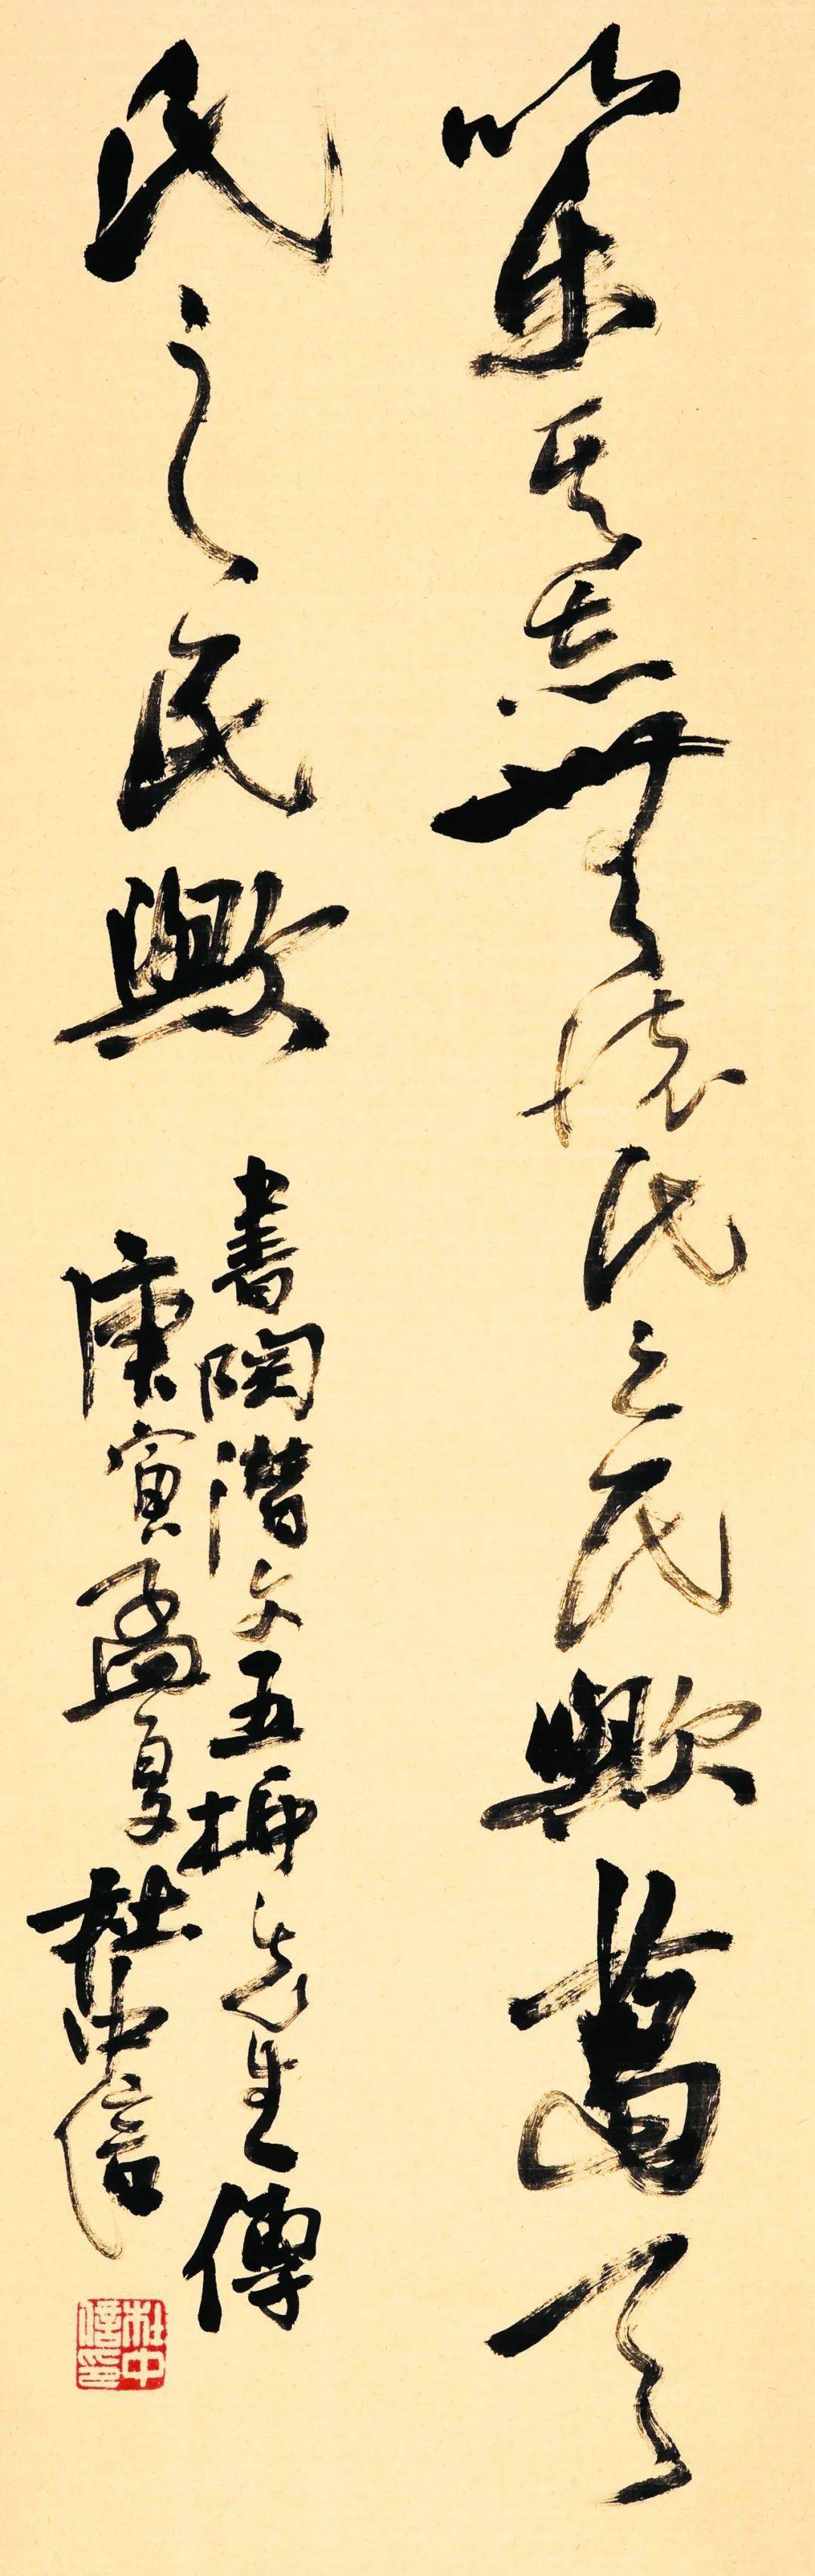 以乐其志無懷氏之民歟葛天
氏之民歟
書陶潜文五柳先生傳
庚寅孟夏杜中信
杜中信印